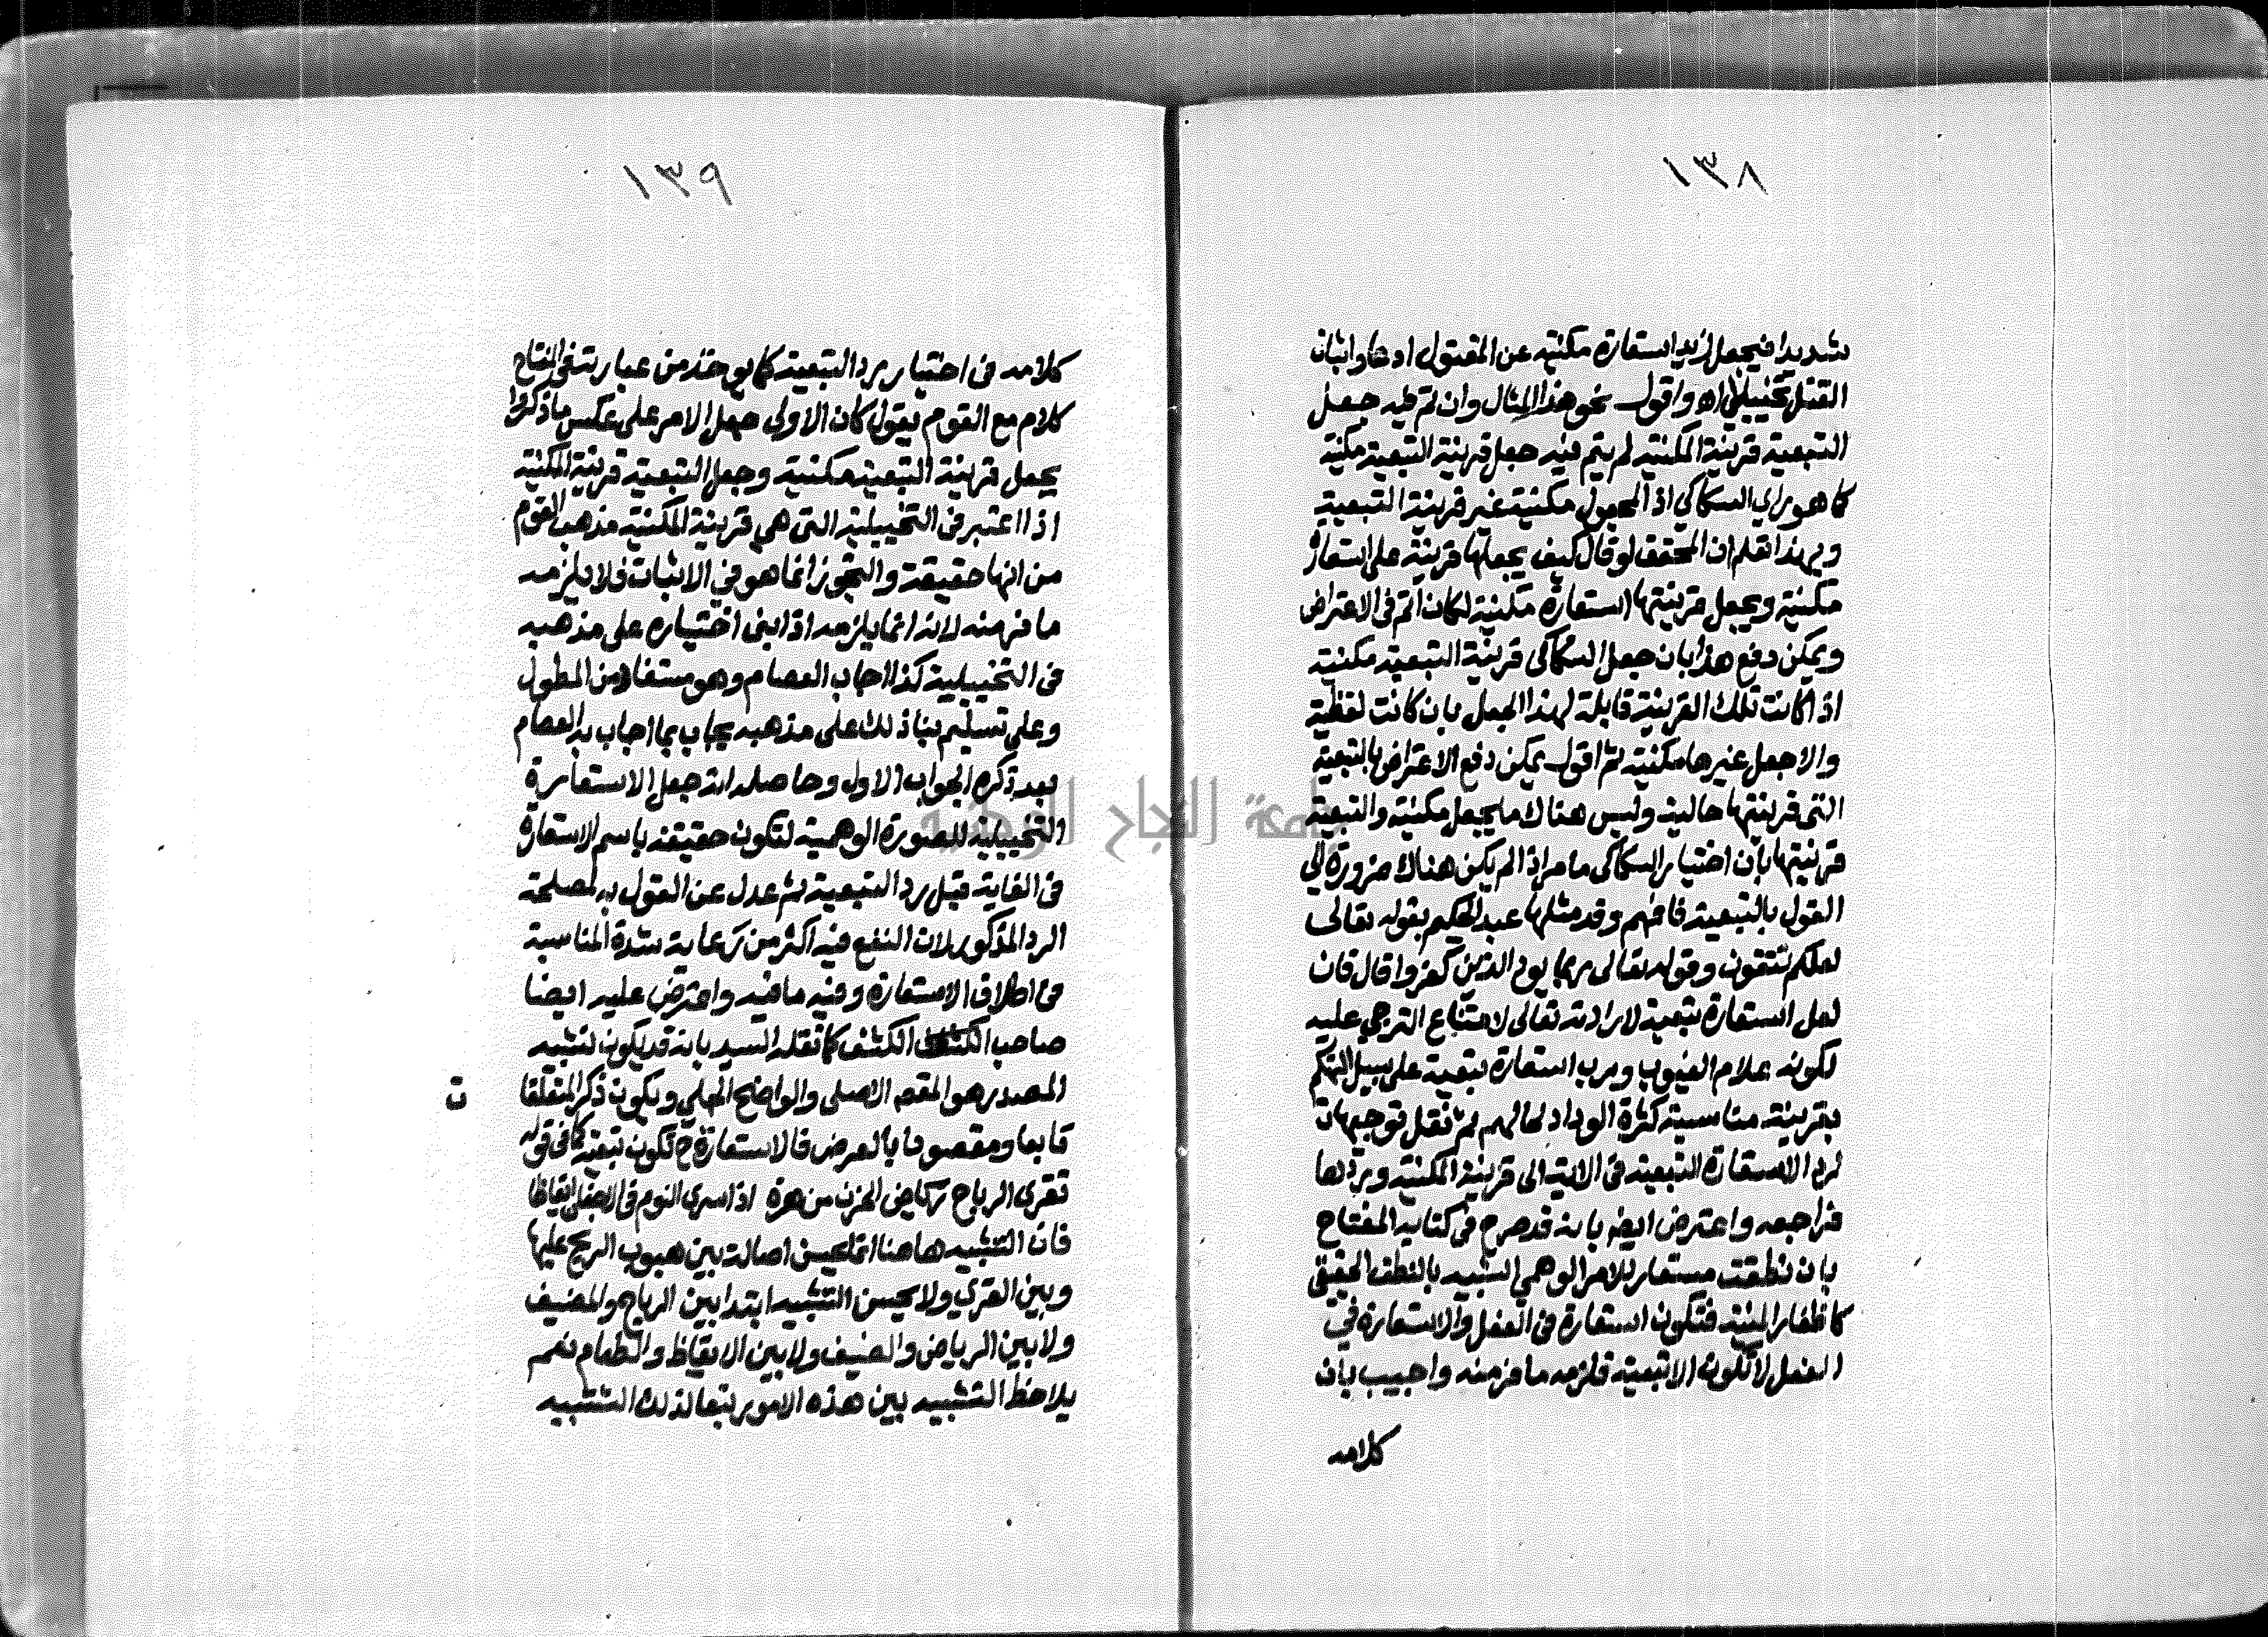 ١٣٨
شديدا فيجعل زيد استعارة مكنية عن المقتول ادعاء واثبات
القتل تخييلا اه واقول نحو هذا المثال وان تم فيه جعل
التبعية قرينة المكنية لم يتم فيه جعل قرينة التبعية مكنية
كما هو راي السكاكي اذ المجعول مكنية غير قرينة التبعية
وبهذا تعلم ان المحقق لو قال كيف يجعلها قرينة على استعارة
مكنية ويجعل قرينتها استعارة مكنية لكان اتم في الاعتراض
ويمكن دفع هذا بان جعل السكاكي قرينة التبعية مكنية
اذا كانت تلك القرينة قابلة لهذا الجعل بان كانت لفظية
والا جعل غيرها مكنية ثم اقول يمكن دفع الاعتراض بالتبعية
التي قرينتها حالية وليس هناك ما يجعل مكنية والتبعية
قرينتها بان اختيار السكاكي ما مر اذا لم يكن هناك ضرورة الى
القول بالتبعية فافهم وقد مثلها عبد الحكيم بقوله تعالى
لعلكم تتقون وقوله تعالى ربما يود الذين كفروا قال فان
لعل استعارة تبعية لارادته تعالى لامتناع الترجي عليه
لكونه علام الغيوب ورب استعارة تبعية على سبيل التهكم
بقرينة مناسبة كثرة الوداد لحالهم ثم نقل توجيهات
لرد الاستعارة التبعية في الاية الى قرينة المكنية وردها
فراجعه واعترض ايضا بانه قد صرح في كتابه المفتاح
بان نطقت مستعار للامر الوهمي الشبيه بالنطق الحقيقي
كاظفار المنية فتكون استعارة في الفعل والاستعارة في
الفعل لا تكون الا تبعية فلزمه ما فر منه واجيب بان
كلامه
١٣٩
كلامه في اختيار رد التبعية كما يوخذ من عبارته في المفتاح
كلام مع القوم يقول كان الاولى جعل الامر على عكس ما ذكروا
يجعل قرينة التبعية مكنية وجعل التبعية قرينة المكنية
اذا اعتبر في التخييلية التي هي قرينة المكنية مذهب القوم
من انها حقيقة والتجوز انما هو في الاثبات فلا يلزمه
ما فر منه لانه انما يلزمه اذا بنى اختياره على مذهبه
في التخييلية كذا اجاب العصام وهو مستفاد من المطول
وعلى تسليم بناء ذلك على مذهبه يجاب بما اجاب به العصام
بعد ذكره الجواب الاول وحاصله انه جعل الاستعارة
التخييلية للصورة الوهمية لتكون حقيقة باسم الاستعارة
في الغاية قبل رد التبعية ثم عدل عن القول به لمصلحة
الرد المذكور لان النفع فيه اكثر من رعاية شدة المناسبة
في اطلاق الاستعارة وفيه ما فيه واعترض عليه ايضا
صاحب الكشف كما نقله السيد بانه قد يكون تشبيه
المصدر هو المقصد الاصلي والواضح الجلي ويكون ذكر المتعلقا
ت
تابعا ومقصودا بالعرض فالاستعارة ح تكون تبعية كما في قوله
تقري الرياح رياض الحزن مزهرة اذا سرى النوم في الاجفان ايقاظا
فان التشبيه هاهنا انما يحسن اصالة بين هبوب الريح عليها
وبين القري ولا يحسن التشبيه ابتدا بين الرياح والمضيف
ولا بين الرياض والضيف ولا بين الايقاظ والطعام نعم
يلاحظ التشبيه بين هذه الامور تبعا لذلك التشبيه
جامعة النجاح الوطنية